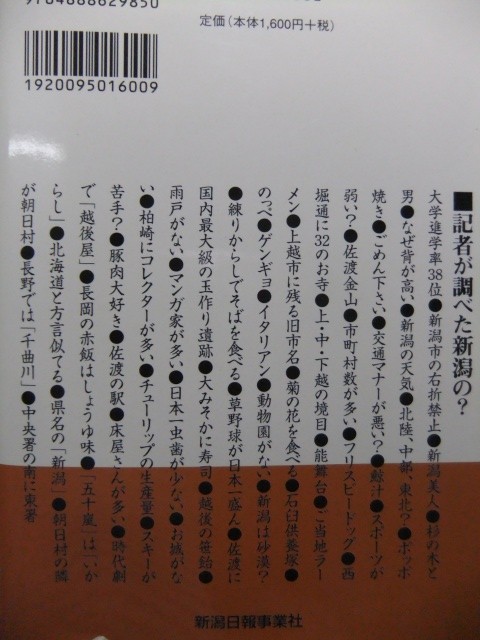 定価(本体1,600円+税)
1920095016009
■記者が調べた新潟の?
大学進学率38位●新潟市の右折禁止●新潟美人●杉の木と
男●なぜ背が高い●新潟の天気●北陸、中部、東北?●ポッポ
焼き●ごめん下さい●交通マナーが悪い?●鯨汁●スポーツが
弱い?●佐渡金山●市町村数が多い●フリスビードッグ●西
堀通に32のお寺●上・中・下越の境目●能舞台●ご当地ラー
メン●上越市に残る旧市名●菊の花を食べる●石臼供養塚●
のっぺ●ゲンギョ●イタリアン●動物園がない●新潟は砂漠?
●練りからしでそばを食べる●草野球が日本一盛ん●佐渡に
国内最大級の玉作り遺跡●大みそかに寿司●越後の笹飴●
雨戸がない●マンガ家が多い●日本一虫歯が少ない●お城がな
い●柏崎にコレクターが多い●チューリップの生産量●スキーが
苦手?●豚肉大好き●佐渡の駅●床屋さんが多い●時代劇
で「越後屋」●長岡の赤飯はしょうゆ味●「五十嵐」は「いか
らし」●北海道と方言似てる●県名の「新潟」●朝日村の隣
が朝日村●長野では「千曲川」●中央署の南に東署
新潟日報事業社